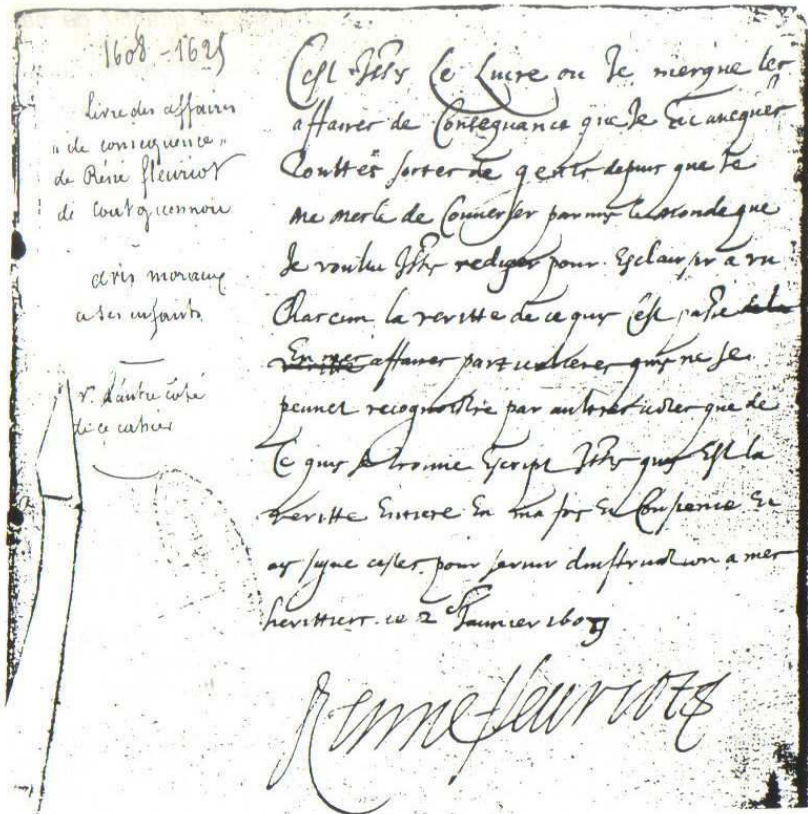 1608 - 1625
Livre des affaires
"de consequence"
de René fleuriot
de
avis moraux
a ses enfants
v. d'autre côté
de ce cahier
C'est Issy Le Livre ou Je merque les
affaires de Consequance que Je
touttes sortes de gents depuis que Je
me mesle de Converser parmy le monde que
Je voulu Issy rediger pour Esclairsir a un
Chascun la veritte de ce quy s'est passé de la
veritte En mes affaires particulieres quy ne se
peuvet recognoistre par aultres que de
Ce quy se trouve Escript Issy quy Est la
veritte Entiere En ma foy Et Consience Et
ay signe cestes pour servir dinstruction a mes
herittiers ce 2e Janvier
Renne fleuriot